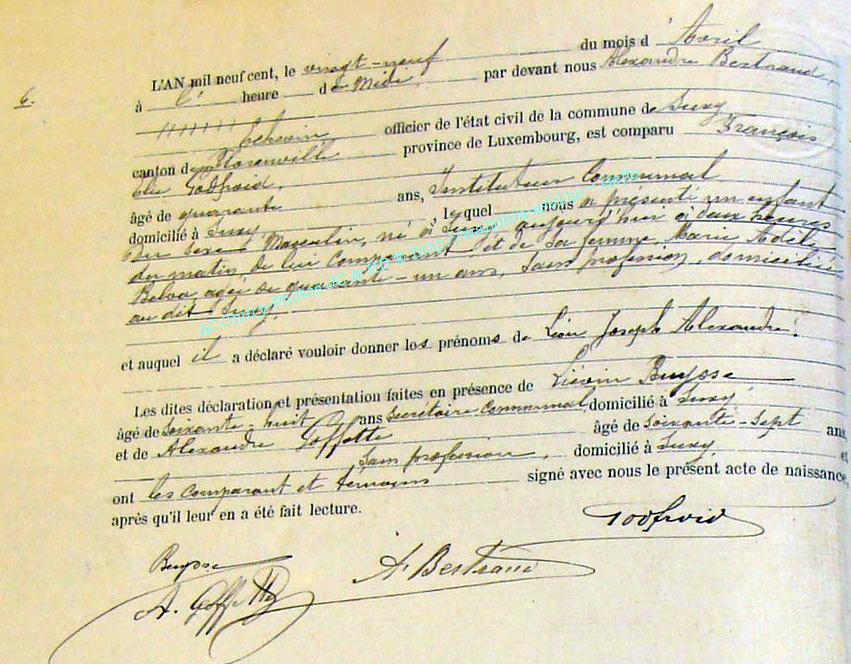 6.
L'AN mil neuf cent, le vingt-neuf du mois d'Avril
à heure de Midi, par devant nous Alexandre Bertrand,
Echevin, officier de l'état civil de la commune de Suxy
canton de Florenville province de Luxembourg, est comparu François
Elie Godfroid,
âgé de quarante ans, Instituteur Communal
domicilié à Suxy, lequel nous a présenté un enfant
du sexe Masculin, né à Suxy, aujourd'hui à deux heures
du matin, de lui comparant et de sa femme, Marie Adèle
Belva, agée de quarante-un ans, sans profession, domiciliée
au dit Suxy,
et auquel il a déclaré vouloir donner les prénoms de Léon Joseph Alexandre.
Les dites déclaration et présentation faites en présence de Liévin Buysse
âgé de soixante-huit ans secrétaire communal, domicilié à Suxy,
et de Alexandre Goffette âgé de soixante-sept ans,
sans profession, domicilié à Suxy, et
ont les comparant et témoins signé avec nous le présent acte de naissance,
après qu'il leur en a été fait lecture.
Godfroid
Buysse
A. Bertrand
A. Goffette